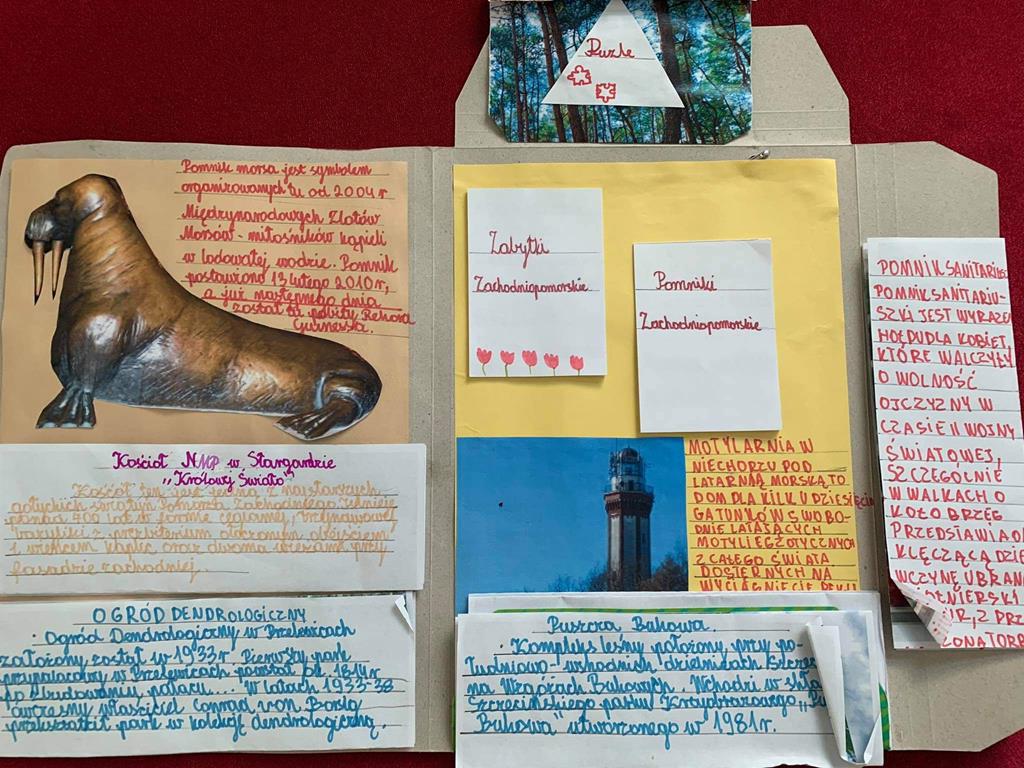 Puzle
Pomnik morsa jest symbolem
organizowanych tu od 2004 r
Międzynarodowych Zlotów
Morsów - miłośników kąpieli
w lodowatej wodzie. Pomnik
postawiono 13 lutego 2010 r,
a już następnego dnia
został tu pobity Rekord
Guinessa.
Kościół NMP w Stargardzie
"Królowy Świata"
Kościół ten jest jedną z najstarszych
gotyckich świątyń Pomorza Zachodniego. Istnieje
ponad 700 lat w formie ceglanej, trzynawowej
bazyliki z prezbiterium otoczonym obejściem
i wieńcem kaplic oraz dwoma wieżami przy
fasadzie zachodniej.
OGRÓD DENDROLOGICZNY
Ogród Dendrologiczny w Przelewicach
założony został w 1933 r Pierwszy park
przypałacowy w Przelewicach powstał ok. 1814r
po zbudowaniu pałacu... W latach 1933-38
ówczesny właściciel Conrad von Borsig
przekształcił park w kolekcję dendrologiczną.
Zabytki
Zachodniopomorskie
Pomniki
Zachodniopomorskie
MOTYLARNIA W
NIECHORZU POD
LATARNIĄ MORSKĄ TO
DOM DLA KILKUDZIESIĘCIU
GATUNKÓW SWOBO-
DNIE LATAJĄCYCH
MOTYLI EGZOTYCZNYCH
Z CAŁEGO ŚWIATA
DOSTĘPNYCH NA
WYCIĄGNIĘCIE RĘKI
Puszcza Bukowa.
Kompleks leśny położony przy po-
łudniowo-wschodnich dzielnicach Szczeci
na Wzgórzach Bukowych. Wchodzi w skła
Szczecińskiego parku Krajobrazowego "Pu
Bukowa" utworzonego w 1981 r.
POMNIK SANITARIUSZ
POMNIK SANITARIU-
SZKI JEST WYRAZEM
HOŁDU DLA KOBIET,
KTÓRE WALCZYŁY
O WOLNOŚĆ
OJCZYZNY W
CZASIE II WOJNY
ŚWIATOWEJ,
SZCZEGÓLNIE
W WALKACH O
KOŁOBRZEG
PRZEDSTAWIA O
KLĘCZĄCĄ DZIE
WCZYNĘ UBRAN
ŻOŁNIERSKI
UR, Z PRZ
ZONĄ TORB